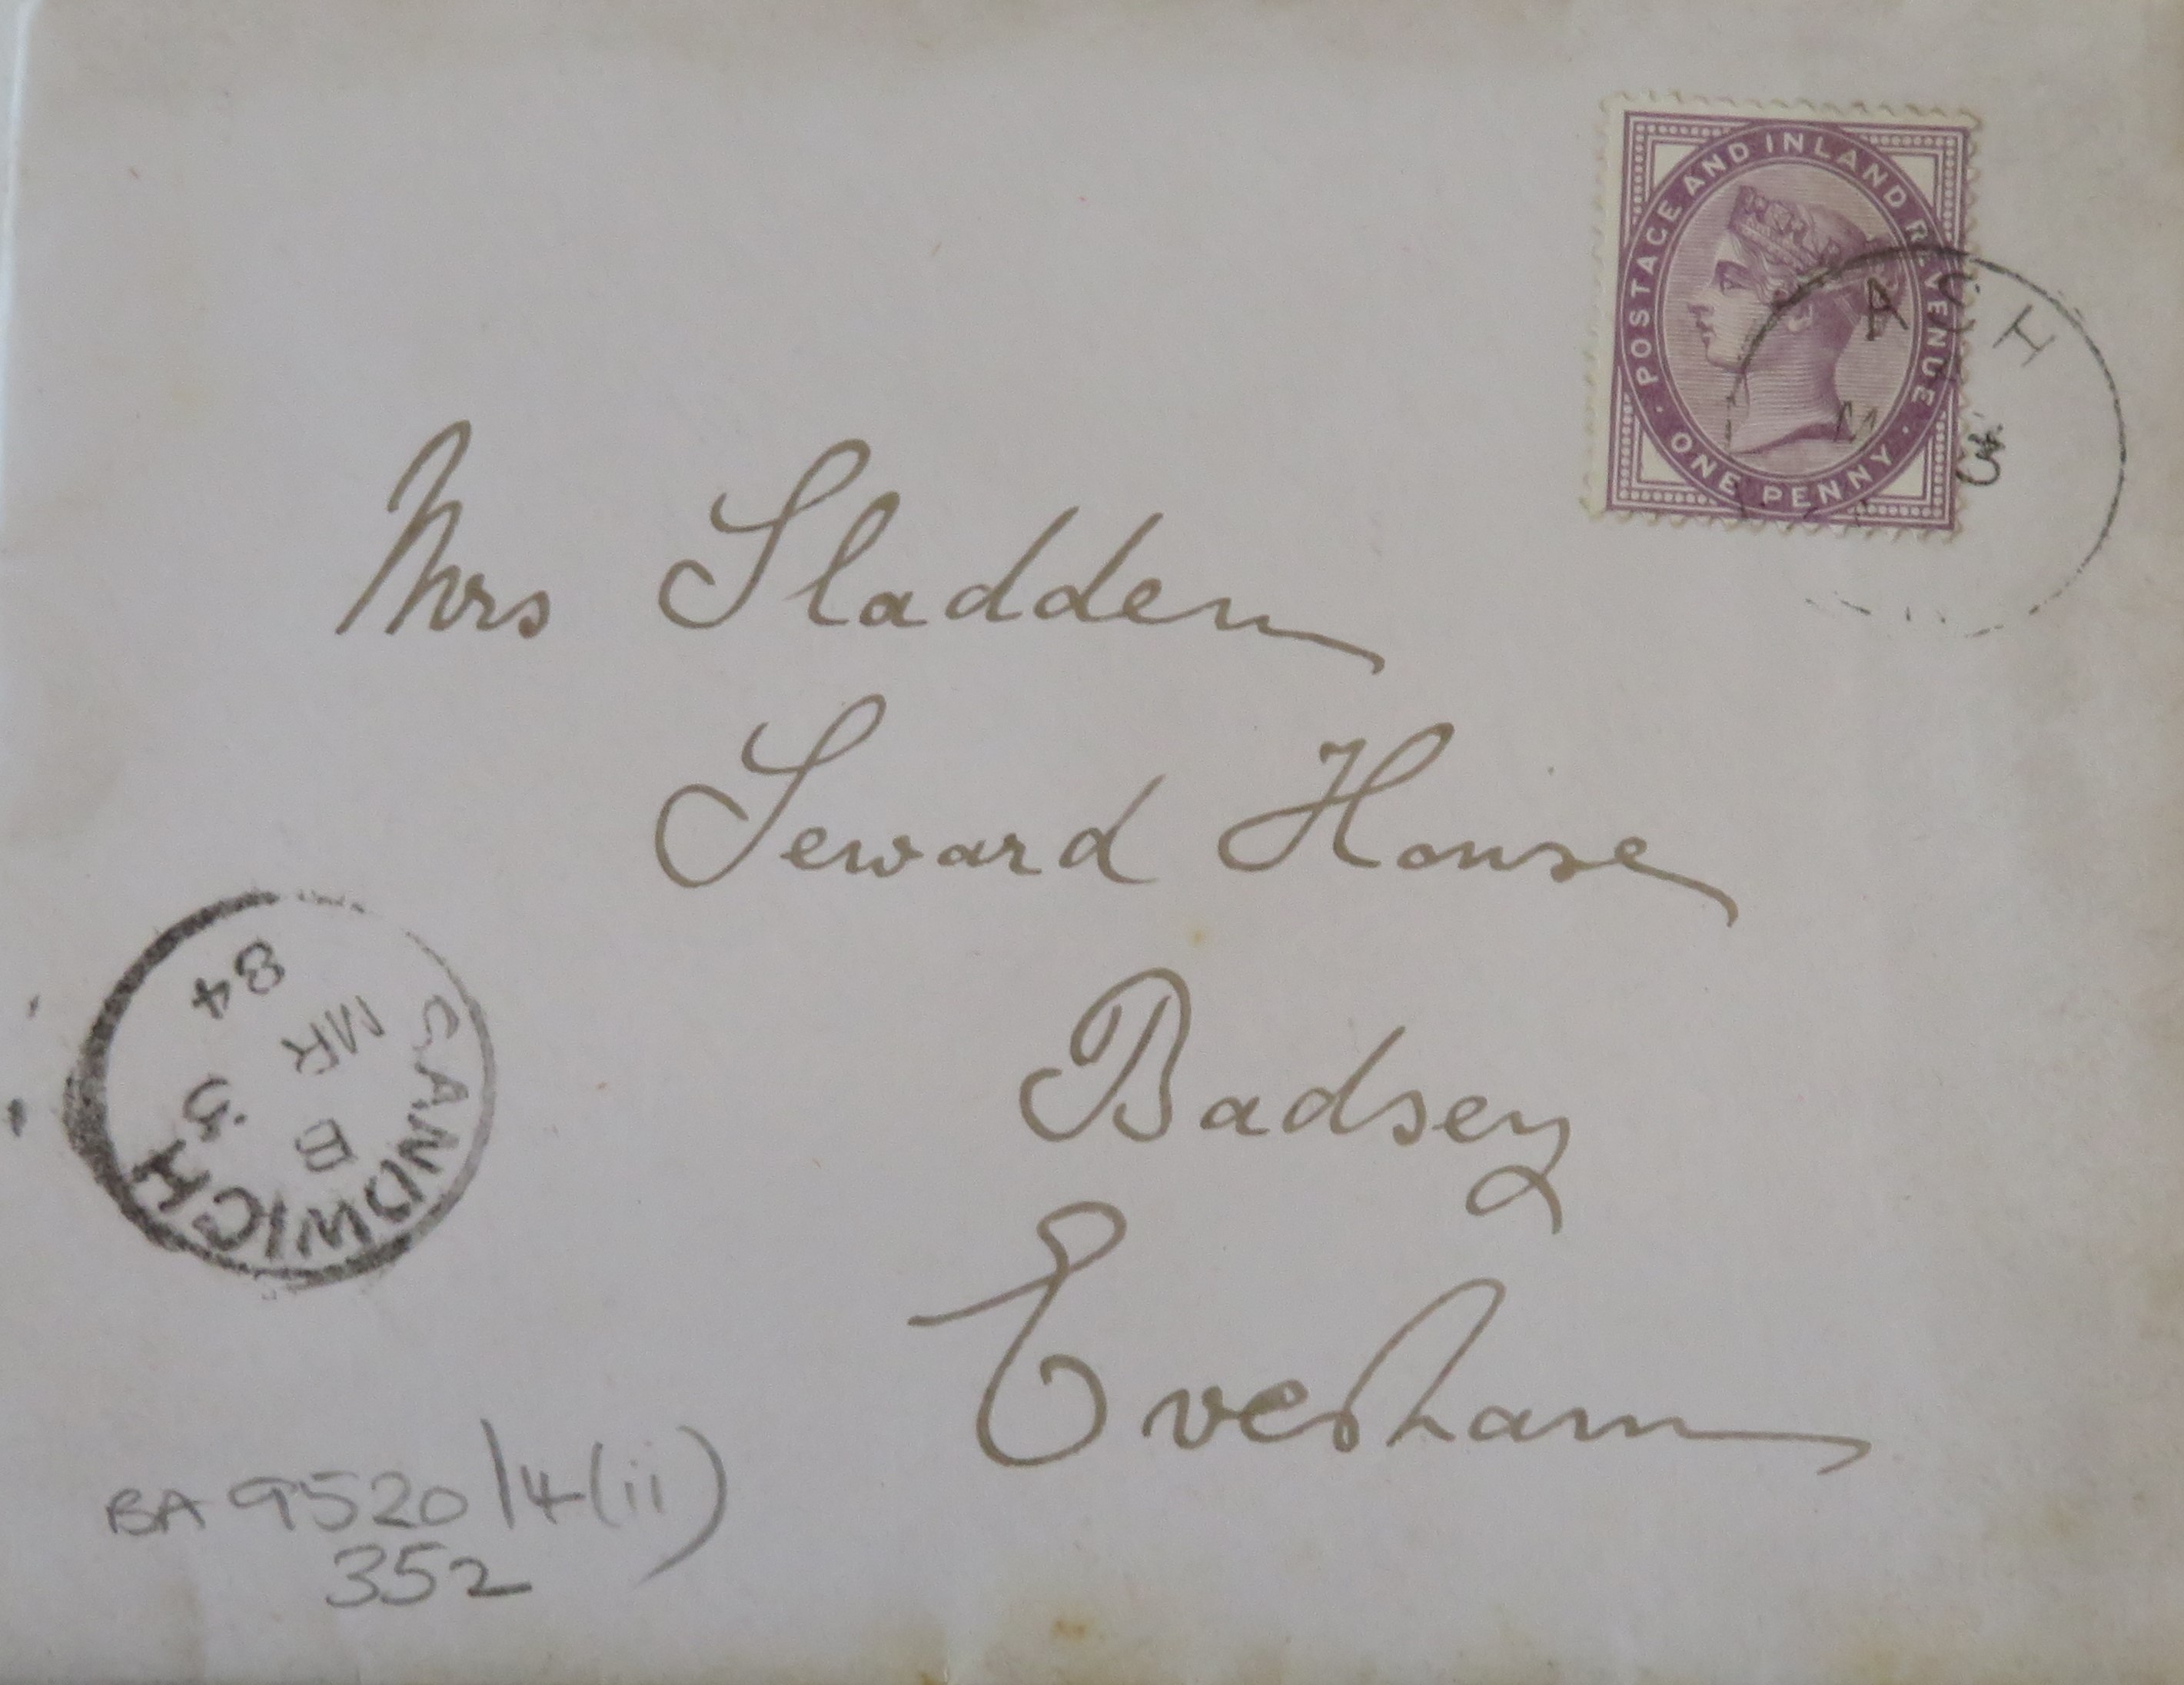 POSTAGE AND INLAND REVENUE
ONE PENNY
A S H
Mrs Sladden
Seward House
Badsey
Evesham
SANDWICH
B
MR 5
84
BA 9520/4(ii)
352